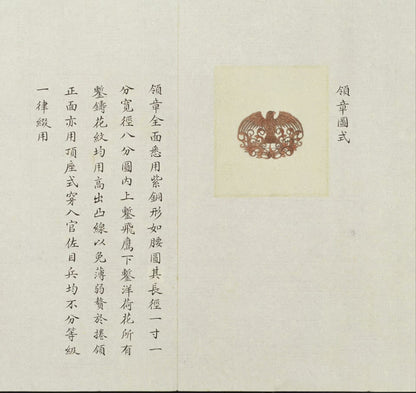 領章圖式
領章全面悉用紫銅形如腰圓其長徑一寸一
分寬徑八分圓內上鏨飛鷹下鏨洋荷花所有
鏨鑄花紋均用高出凸線以免薄弱贅於捲領
正面亦用頂座式穿入官佐目兵均不分等級
一律綴用